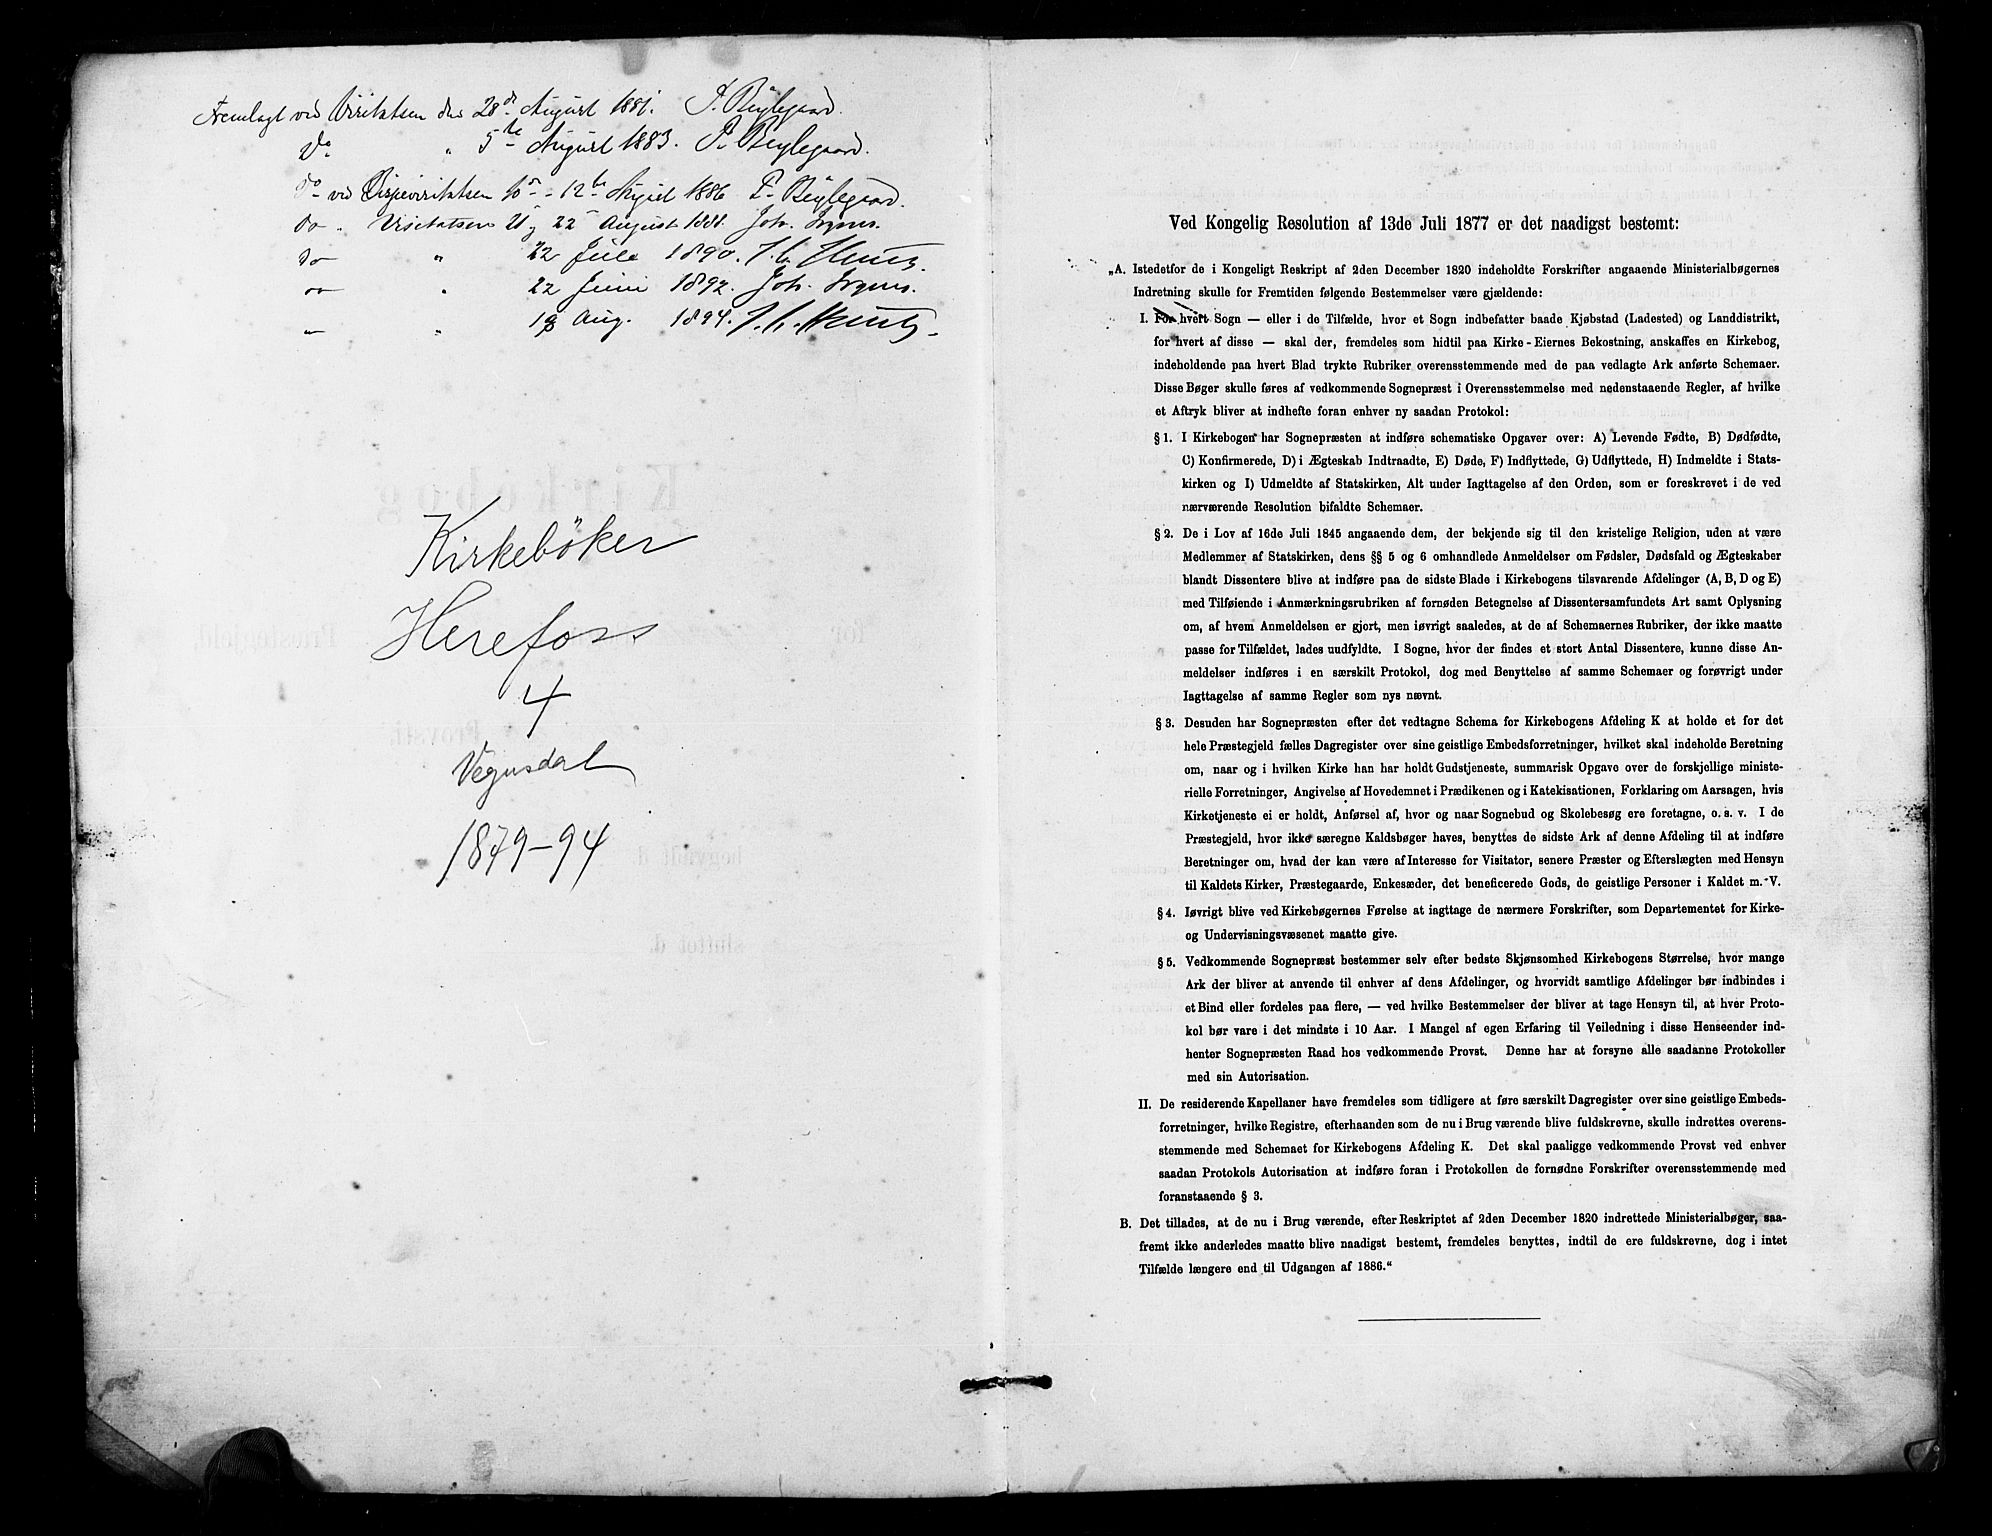 Fremlagt ved Visitatsen den 28de August 1881. P. Beylegaard.
Do " 5te August 1883. P. Beylegaard.
do ved Bispevisitatsen 10de - 12te August 1886 P. Beylegaard.
do " Visitatsen 21 og 22 August 1888. Joh. Irgens.
do " 22 Juli 1890. J. C. Heuch.
do " 22 Juni 1892. Joh. Irgens.
" " 19 Aug. 1894. J. C. Heuch.
Kirkebøker
Herefoss
4
Vegusdal
1879-94
Ved Kongelig Resolution af 13de Juli 1877 er det naadigst bestemt:
„A. Istedetfor de i Kongeligt Reskript af 2den December 1820 indeholdte Forskrifter angaaende Ministerialbøgernes
Indretning skulle for Fremtiden følgende Bestemmelser være gjældende:
I. For hvert Sogn — eller i de Tilfælde, hvor et Sogn indbefatter baade Kjøbstad (Ladested) og Landdistrikt,
for hvert af disse — skal der, fremdeles som hidtil paa Kirke-Eiernes Bekostning, anskaffes en Kirkebog,
indeholdende paa hvert Blad trykte Rubriker overensstemmende med de paa vedlagte Ark anførte Schemaer.
Disse Bøger skulle føres af vedkommende Sognepræst i Overensstemmelse med nedenstaaende Regler, af hvilke
et Aftryk bliver at indhefte foran enhver ny saadan Protokol:
§ 1. I Kirkebogen har Sognepræsten at indføre schematiske Opgaver over: A) Levende Fødte, B) Dødfødte,
C) Konfirmerede, D) i Ægteskab Indtraadte, E) Døde, F) Indflyttede, G) Udflyttede, H) Indmeldte i Stats-
kirken og I) Udmeldte af Statskirken, Alt under Iagttagelse af den Orden, som er foreskrevet i de ved
nærværende Resolution bifaldte Schemaer.
§ 2. De i Lov af 16de Juli 1845 angaaende dem, der bekjende sig til den kristelige Religion, uden at være
Medlemmer af Statskirken, dens §§ 5 og 6 omhandlede Anmeldelser om Fødsler, Dødsfald og Ægteskaber
blandt Dissentere blive at indføre paa de sidste Blade i Kirkebogens tilsvarende Afdelinger (A, B, D og E)
med Tilføiende i Anmærkningsrubriken af fornøden Betegnelse af Dissentersamfundets Art samt Oplysning
om, af hvem Anmeldelsen er gjort, men iøvrigt saaledes, at de af Schemaernes Rubriker, der ikke maatte
passe for Tilfældet, lades uudfyldte. I Sogne, hvor der findes et stort Antal Dissentere, kunne disse An-
meldelser indføres i en særskilt Protokol, dog med Benyttelse af samme Schemaer og forøvrigt under
Iagttagelse af samme Regler som nys nævnt.
§ 3. Desuden har Sognepræsten efter det vedtagne Schema for Kirkebogens Afdeling K at holde et for det
hele Præstegjeld fælles Dagregister over sine geistlige Embedsforretninger, hvilket skal indeholde Beretning
om, naar og i hvilken Kirke han har holdt Gudstjeneste, summarisk Opgave over de forskjellige ministe-
rielle Forretninger, Angivelse af Hovedemnet i Prædikenen og i Katekisationen, Forklaring om Aarsagen, hvis
Kirketjeneste ei er holdt, Anførsel af, hvor og naar Sognebud og Skolebesøg ere foretagne, o. s. v. I de
Præstegjeld, hvor ikke særegne Kaldsbøger haves, benyttes de sidste Ark af denne Afdeling til at indføre
Beretninger om, hvad der kan være af Interesse for Visitator, senere Præster og Efterslægten med Hensyn
til Kaldets Kirker, Præstegaarde, Enkesæder, det beneficerede Gods, de geistlige Personer i Kaldet m. V.
§ 4. Iøvrigt blive ved Kirkebøgernes Førelse at iagttage de nærmere Forskrifter, som Departementet for Kirke-
og Undervisningsvæsenet maatte give.
§ 5. Vedkommende Sognepræst bestemmer selv efter bedste Skjønsomhed Kirkebogens Størrelse, hvor mange
Ark der bliver at anvende til enhver af dens Afdelinger, og hvorvidt samtlige Afdelinger bør indbindes i
et Bind eller fordeles paa flere, — ved hvilke Bestemmelser der bliver at tage Hensyn til, at hver Proto-
kol bør vare i det mindste i 10 Aar. I Mangel af egen Erfaring til Veiledning i disse Henseender ind-
henter Sognepræsten Raad hos vedkommende Provst. Denne har at forsyne alle saadanne Protokoller
med sin Autorisation.
II. De residerende Kapellaner have fremdeles som tidligere at føre særskilt Dagregister over sine geistlige Embeds-
forretninger, hvilke Registre, efterhaanden som de nu i Brug værende blive fuldskrevne, skulle indrettes overens-
stemmende med Schemaet for Kirkebogens Afdeling K. Det skal paaligge vedkommende Provst ved enhver
saadan Protokols Autorisation at indføre foran i Protokollen de fornødne Forskrifter overensstemmende med
foranstaaende § 3.
B. Det tillades, at de nu i Brug værende, efter Reskriptet af 2den December 1820 indrettede Ministerialbøger, saa-
fremt ikke anderledes maatte blive naadigst bestemt, fremdeles benyttes, indtil de ere fuldskrevne, dog i intet
Tilfælde længere end til Udgangen af 1886.“